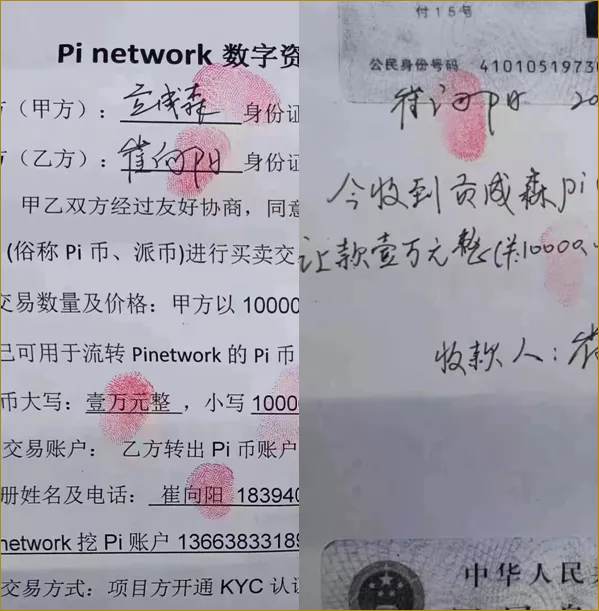 Pi network 数字资
方（甲方）：贡成森 身份证
方（乙方）：崔向阳 身份证
甲乙双方经过友好协商，同意
(俗称 Pi 币、派币)进行买卖交
交易数量及价格：甲方以 10000
已可用于流转 Pinetwork 的 Pi 币
币大写：壹万元整 ，小写 1000
交易账户： 乙方转出 Pi 币账户
册姓名及电话： 崔向阳 183940
network 挖 Pi 账户 13663833189
交易方式：项目方开通 KYC 认证
付15号
公民身份号码 4101051973
崔向阳 20
今收到贡成森pi
让款壹万元整(¥:10000.
收款人：崔
中华人民共